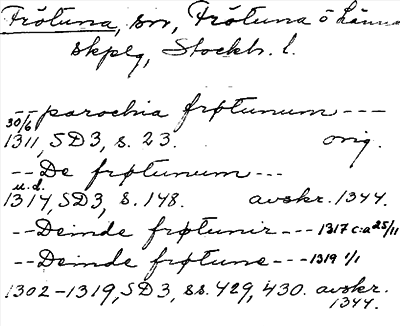 Frötuna, sn, Frötuna o Länna
skplg, Stockh. l.
--parochia frøtunum---
30/6
1311, SD3, s. 23. orig.
--De frøtunum---
u.d.
1314, SD3, s. 148. avskr. 1344.
--Deinde frøtunir---1317 c:a 25/11
--Deinde frøtune---1319 1/1
1302-1319, SD3, ss. 429, 430. avskr.
1344.